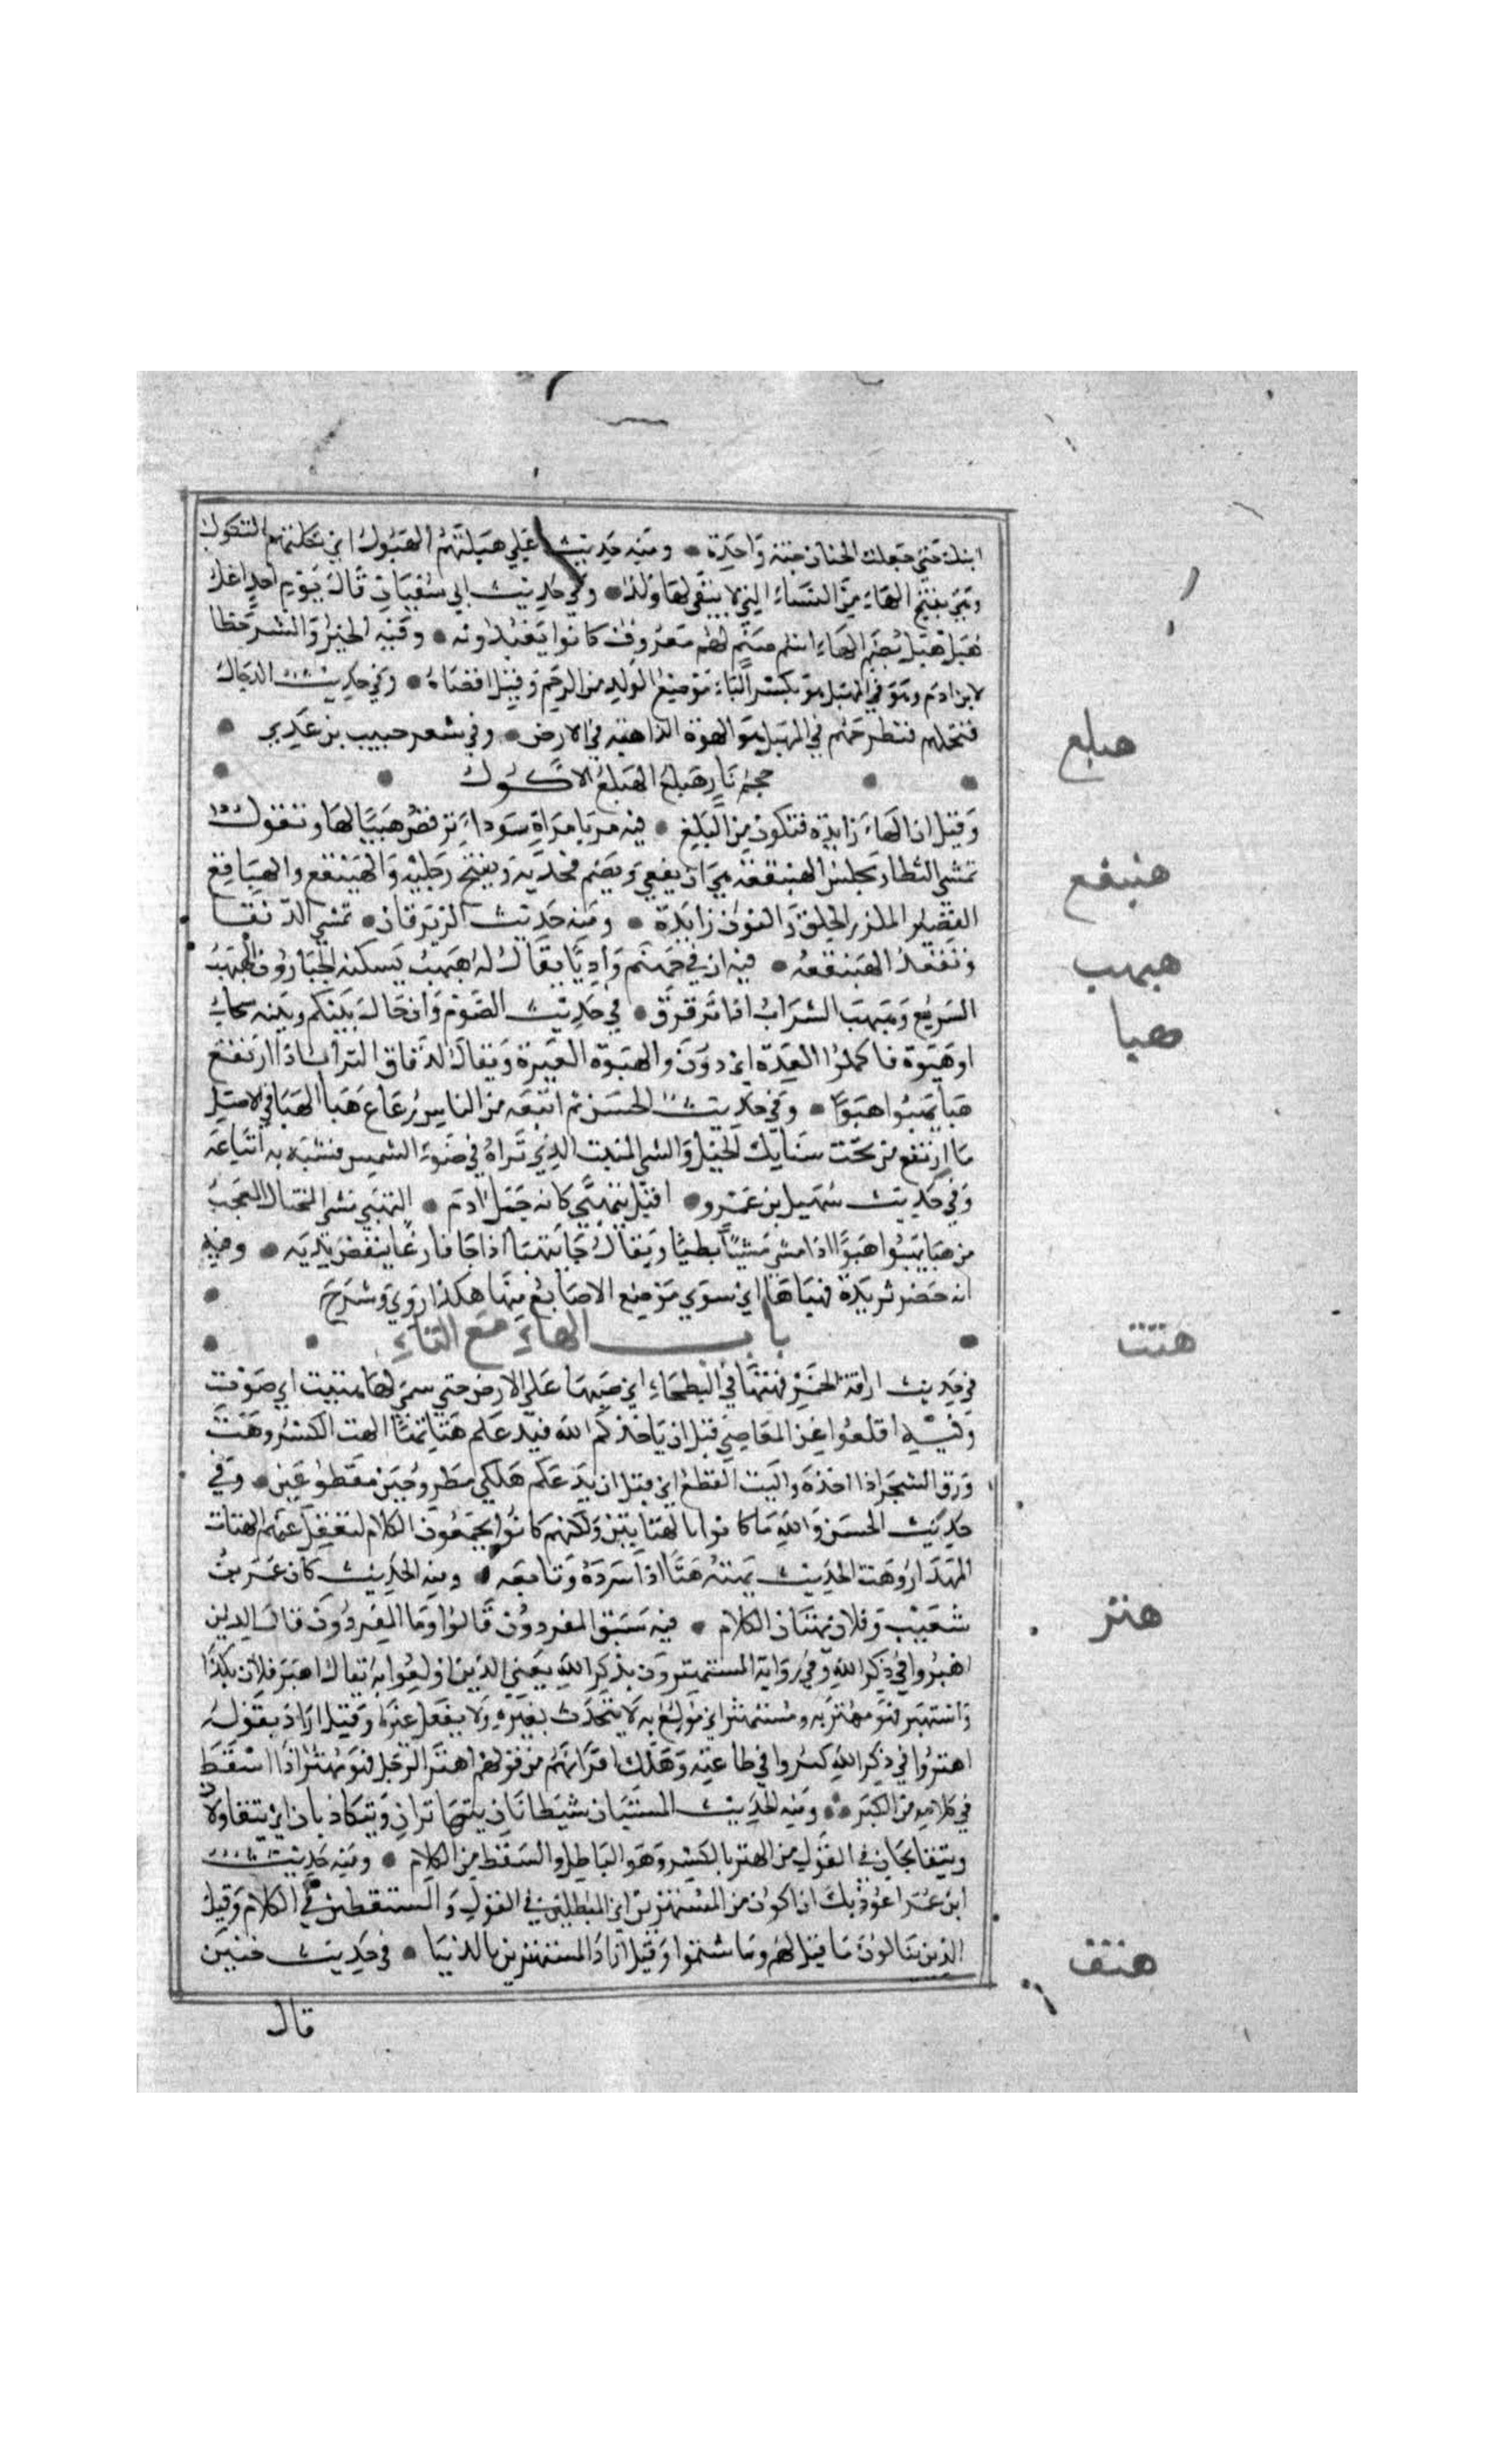 ابنك حتى جعلت الجنان جنة واحدة • ومنه حديث علي هبلتهم الهبول اي ثكلتهم الثكول
وهي بفتح الهاء من النساء التي لا يبقى لها ولد • وفي حديث ابي سفيان قال يوم احد اعل
هبل هبل بضم الهاء اسم صنم لهم معروف كانوا يعبدونه • وفيه الخير والشر خطا
لابن ادم وهو في المهبل هو بكسر الباء موضع الولد من الرحم وقيل اقصاه • وفي حديث الدجال
فتحملهم فتطرحهم في المهبل هو الهوة الذاهبة في الارض • وفي شعر خبيب بن عدي •
جحم نار هبلع الهبلع الاكول
وقيل ان الهاء زايدة فتكون من البلع • فيه مر بامراة سوداء ترقص صبيا لها وتقول
تمشي الثطا وتجلس الهبنقعة هي ان يقعي ويضم فخذيه ويفتح رجليه والهبنقع والهباقع
القصير الملزز الخلق والنون زايدة • ومنه حديث الزبرقان • تمشي الدفقا
وتقعد الهبنقعة • فيه ان في جهنم واديا يقال له هبهب يسكنه الجبارون الهبهب
السريع وهبهب السراب اذا ترقرق • في حديث الصوم وان حال بينكم وبينه سحاب
او هبوة فاكملوا العدة اي دون والهبوة الغبرة ويقال لدقاق التراب اذا ارتفع
هبا يهبوا هبوا • وفي حديث الحسن ثم اتبعه من الناس رعاع هبا الهبا في الاصل
ما ارتفع من تحت سنابك الخيل والشي المنبث الذي تراه في ضوء الشمس فشبه به اتباعه
وفي حديث سهيل بن عمرو • اقبل يتهبى كانه جمل ادم • التهبي مشي المختال المعجب
من هبا يهبوا هبوا اذا مشى مشيا بطيئا ويقال جا يتهبا اذا جا فارغا ينفض يديه • وفيه
انه حضر ثريدة فهباها اي سوى موضع الاصابع منها هكذا روي وشرح •
باب الهاء مع التاء
في حديث اراقة الخمر فهتها في البطحاء اي صبها على الارض حتى سمع لها هتيت اي صوت
وفيه اقلعوا عن المعاصي قبل ان ياخذكم الله فيدعكم هتا بتا الهت الكسر وهت
ورق الشجر اذا اخذه والبت القطع اي قبل ان يدعكم هلكى مطروحين مقطوعين • وفي
حديث الحسن والله ما كانوا بالهتاتين ولكنهم كانوا يجمعون الكلام لتعقل عنهم الهتات
المهذار وهت الحديث يهته هتا اذا سرده وتابعه • ومنه الحديث كان عمر بن
شعيب وفلان يهتان الكلام • فيه سبق المفردون قالوا وما المفردون قال الذين
اهتروا في ذكر الله وفي رواية المستهترون بذكر الله يعني الذين اولعوا به يقال اهتر فلان بكذا
واستهتر فهو مهتر به ومستهتر اي مولع به لا يتحدث بغيره ولا يفعل غيره وقيل اراد بقوله
اهتروا في ذكر الله كبروا في طاعته وهلك اقرانهم من قولهم اهتر الرجل فهو مهتر اذا اسقط
في كلامه من الكبر • ومنه الحديث المستبان شيطانان يتهاتران ويتكاذبان اي يتقاولان
ويتقابحان في القول من الهتر بالكسر وهو الباطل والسقط من الكلام • ومنه حديث
ابن عمر اعوذ بك ان اكون من المستهترين اي المبطلين في القول والمسقطين في الكلام وقيل
الذين يبالون ما قيل لهم وما شتموا وقيل اراد المستهترين بالدنيا • في حديث حنين
قال
هبلع
هبنقع
هبهب
هبا
هتت
هتر
هتف